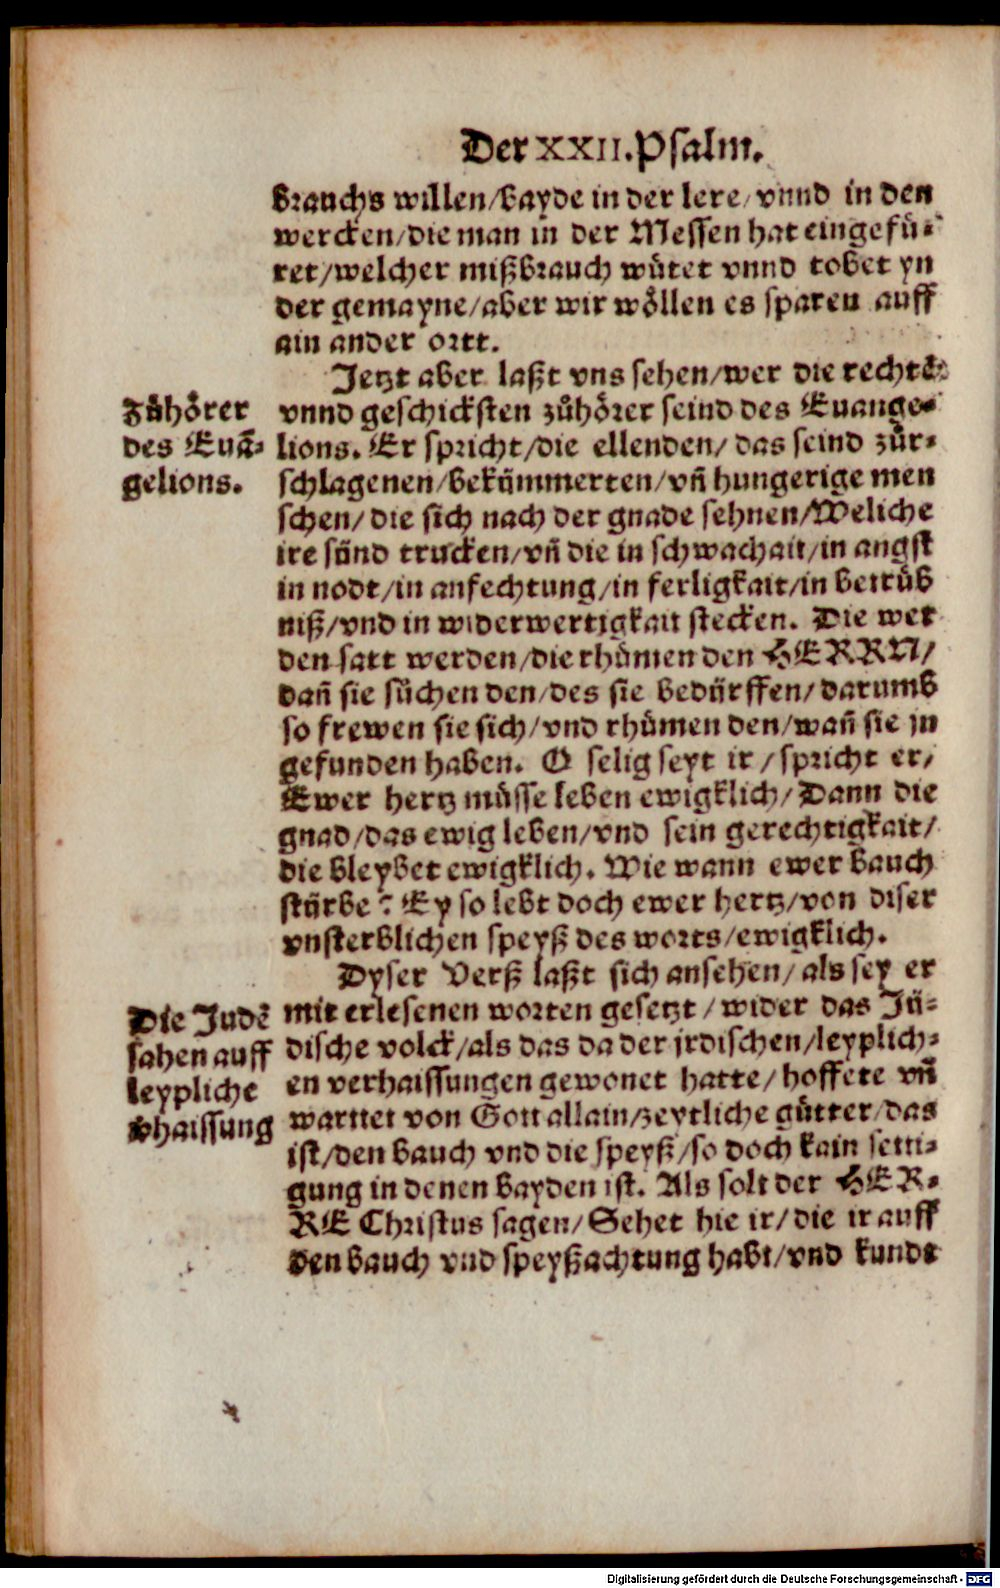 Der XXII. Psalm.
brauchs willen/bayde in der lere/vnnd in den
wercken/die man in der Messen hat eingefü-
ret/welcher mißbrauch wütet vnnd tobet yn
der gemayne/aber wir wöllen es sparen auff
ain ander ortt.
Jetzt aber laßt vns sehen/wer die rechtē
Zůhörer
des Euā-
gelions.
vnnd geschicksten zůhörer seind des Euange-
lions. Er spricht/die ellenden/das seind zůr-
schlagenen/bekümmerten/vñ hungerige men
schen/die sich nach der gnade sehnen/Weliche
ire sünd trucken/vñ die in schwachait/in angst
in nodt/in anfechtung/in ferligkait/in betrüb
niß/vnd in widerwertigkait stecken. Die wer
den satt werden/die rhümen den HERRN/
dañ sie sůchen den/des sie bedürffen/darumb
so frewen sie sich/vnd rhümen den/wañ sie jn
gefunden haben. O selig seyt ir/spricht er/
Ewer hertz müsse leben ewigklich/Dann die
gnad/das ewig leben/vnd sein gerechtigkait/
die bleybet ewigklich. Wie wann ewer bauch
stürbe? Ey so lebt doch ewer hertz/von diser
vnsterblichen speyß des worts/ewigklich.
Dyser Verß laßt sich ansehen/als sey er
Die Judē
sahen auff
leypliche
vhaissung
mit erlesenen worten gesetzt/wider das Jü-
dische volck/als das da der jrdischen/leyplich-
en verhaissungen gewonet hatte/hoffete vñ
warttet von Gott allain/zeytliche gütter/das
ist/den bauch vnd die speyß/so doch kain setti-
gung in denen bayden ist. Als solt der HER-
RE Christus sagen/Sehet hie ir/die ir auff
den bauch vnd speyß achtung habt/vnd kundt
Digitalisierung gefördert durch die Deutsche Forschungsgemeinschaft - DFG